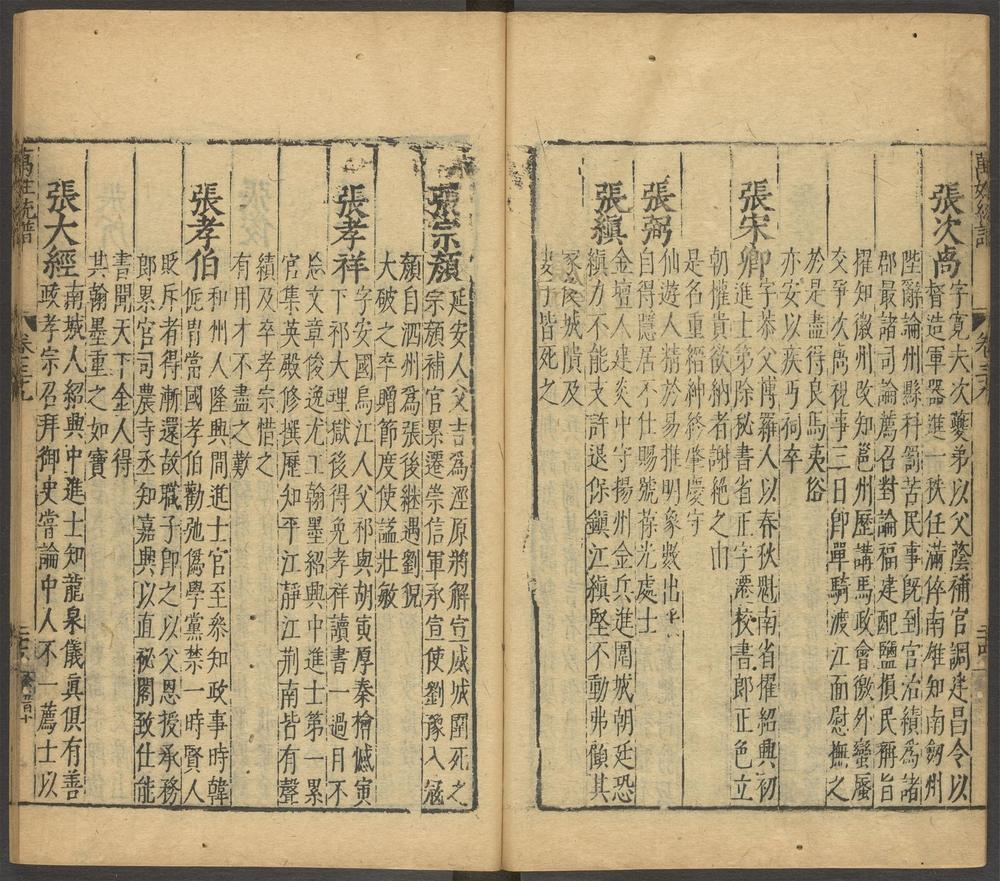 萬姓統譜
卷三十九
張次卨
字寬夫次夔弟以父蔭補官調建昌令以
督造軍器進一秩任滿倅南雄知南劒州
陛辭論州縣科罰苦民事旣到官治績爲諸
郡最諸司論薦召對論福建配鹽損民稱旨
擢知徽州改知邕州歷講馬政會徼外蠻蜑
交爭次卨視事三日卽單騎渡江面慰撫之
於是盡得良馬夷俗
亦安以疾丐祠卒
張宋卿
字恭父博羅人以春秋魁南省擢紹興初
進士第除秘書省正字遷校書郎正色立
朝權貴欲納者謝絶之由
是名重縉紳終肇慶守
張弼
仙遊人精於易推明象數出
自得隱居不仕賜號葆光處士
張縝
金壇人建炎中守揚州金兵進圍城朝廷恐
縝力不能支許退保鎭江縝堅不動弗傾其
冢及城隤及
妻子皆死之
張宗顏
延安人父吉爲涇原將解宣威城圍死之
宗顏補官累遷崇信軍承宣使劉豫入寇
顏自泗州爲張後継遇劉猊
大破之卒贈節度使謚壯敏
張孝祥
字安國烏江人父祁與胡寅厚秦檜憾寅
下祁大理獄後得免孝祥讀書一過目不
忘文章俊逸尤工翰墨紹興中進士第一累
官集英殿修撰歷知平江靜江荊南皆有聲
績及卒孝宗惜之
有用才不盡之歎
張孝伯
和州人隆興間進士官至叅知政事時韓
侂冑當國孝伯勸弛僞學黨禁一時賢人
貶斥者得漸還故職子卽之以父恩授承務
郎累官司農寺丞知嘉興以直祕閣致仕能
書聞天下金人得
其翰墨重之如寶
張大經
南城人紹興中進士知龍泉儀眞俱有善
政孝宗召拜御史嘗論中人不一薦士以
萬姓統譜
卷三十九